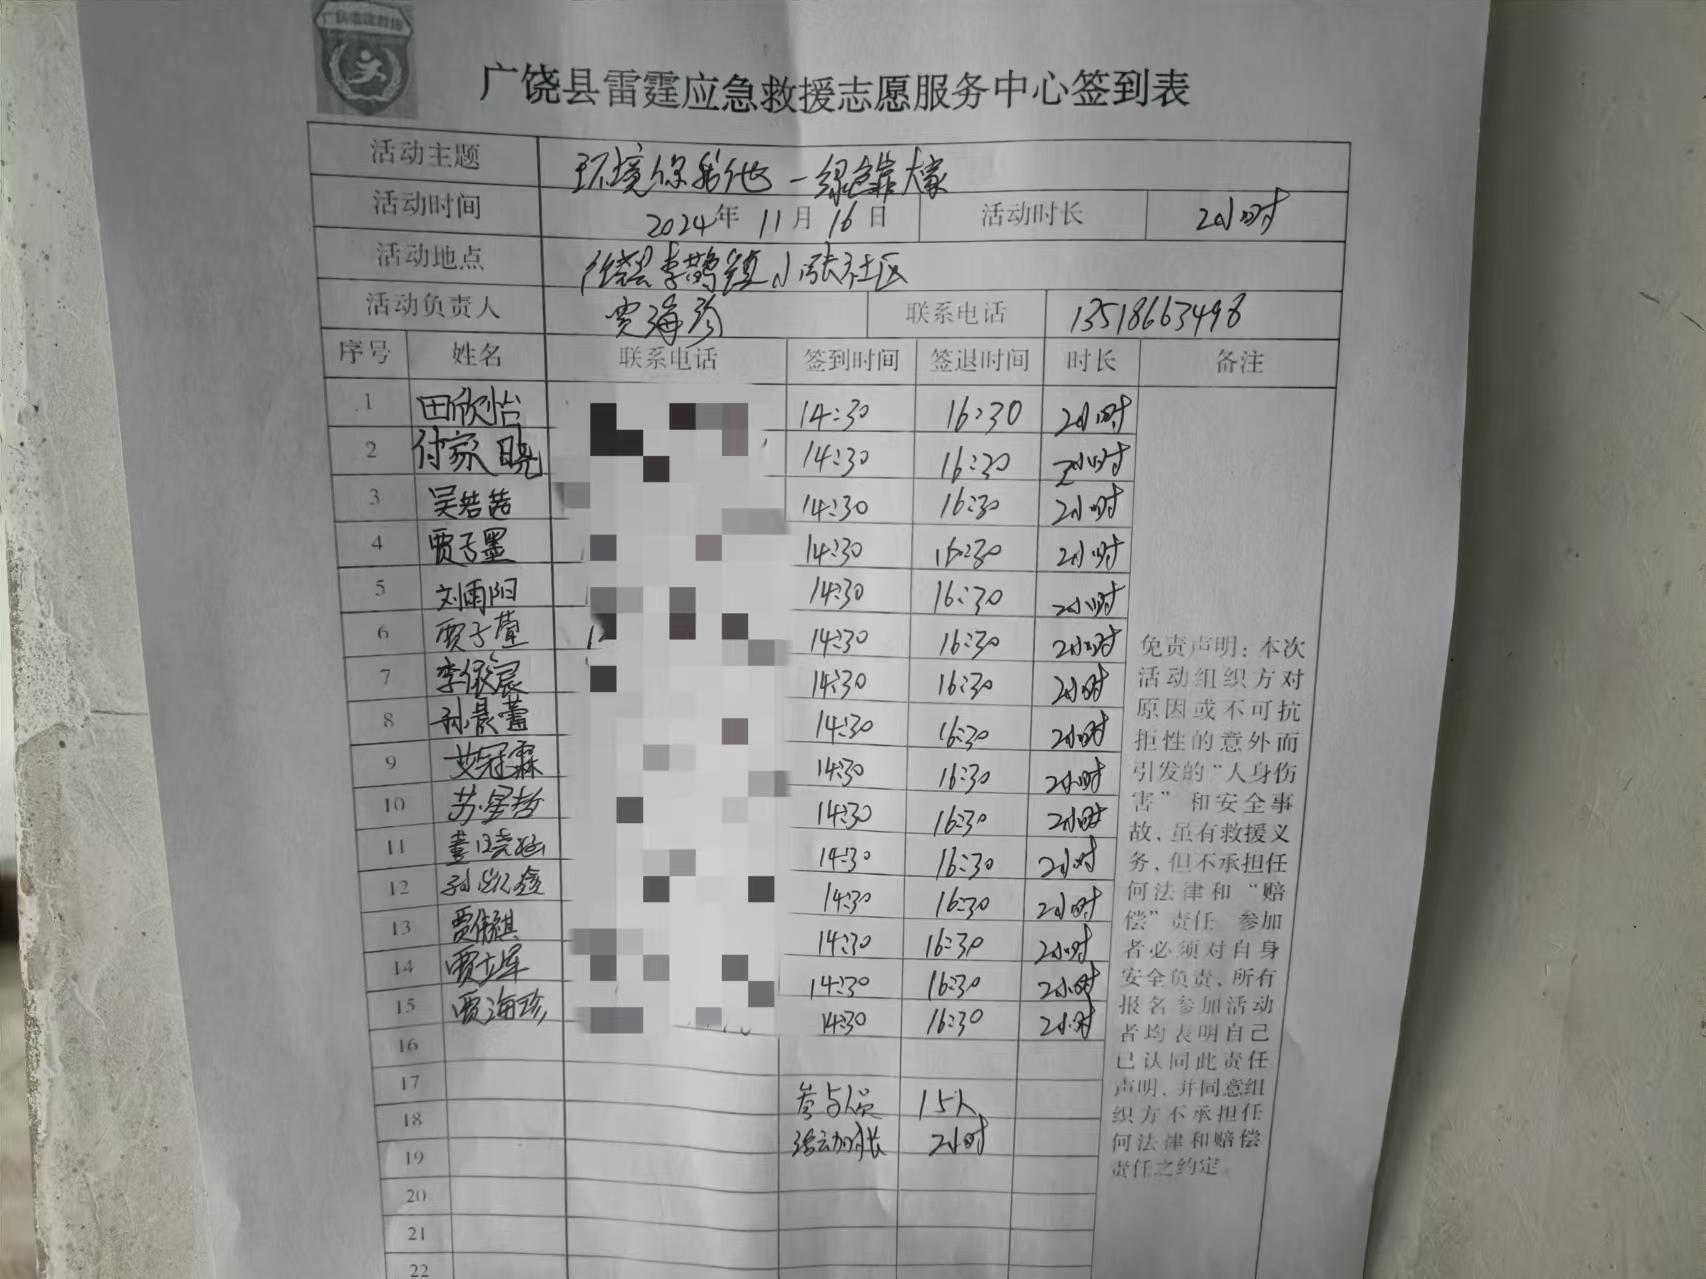 广饶雷霆救援
广饶县雷霆应急救援志愿服务中心签到表
活动主题 环境保我他一绿色靠大家
活动时间 2024年11月16日 活动时长 2小时
活动地点 广饶县李鹊镇小张社区
活动负责人 贾海珍 联系电话 13518663498
序号 姓名 联系电话 签到时间 签退时间 时长 备注
1 田欣怡 14:30 16:30 2小时
2 付家晓 14:30 16:30 2小时
3 吴若茜 14:30 16:30 2小时
4 贾子墨 14:30 16:30 2小时
5 刘雨阳 14:30 16:30 2小时
6 贾子萱 14:30 16:30 2小时
7 李俊宸 14:30 16:30 2小时
8 孙晨蕾 14:30 16:30 2小时
9 艾冠霖 14:30 16:30 2小时
10 苏星哲 14:30 16:30 2小时
11 董晓涵 14:30 16:30 2小时
12 孙凯鑫 14:30 16:30 2小时
13 贾伟祺 14:30 16:30 2小时
14 贾立军 14:30 16:30 2小时
15 贾海珍 14:30 16:30 2小时
16
17 参与人员 15人
18 活动时长 2小时
19
20
21
22
免责声明：本次
活动组织方对
原因或不可抗
拒性的意外而
引发的“人身伤
害”和安全事
故，虽有救援义
务，但不承担任
何法律和“赔
偿”责任 参加
者必须对自身
安全负责，所有
报名参加活动
者均表明自己
已认同此责任
声明，并同意组
织方不承担任
何法律和赔偿
责任之约定。